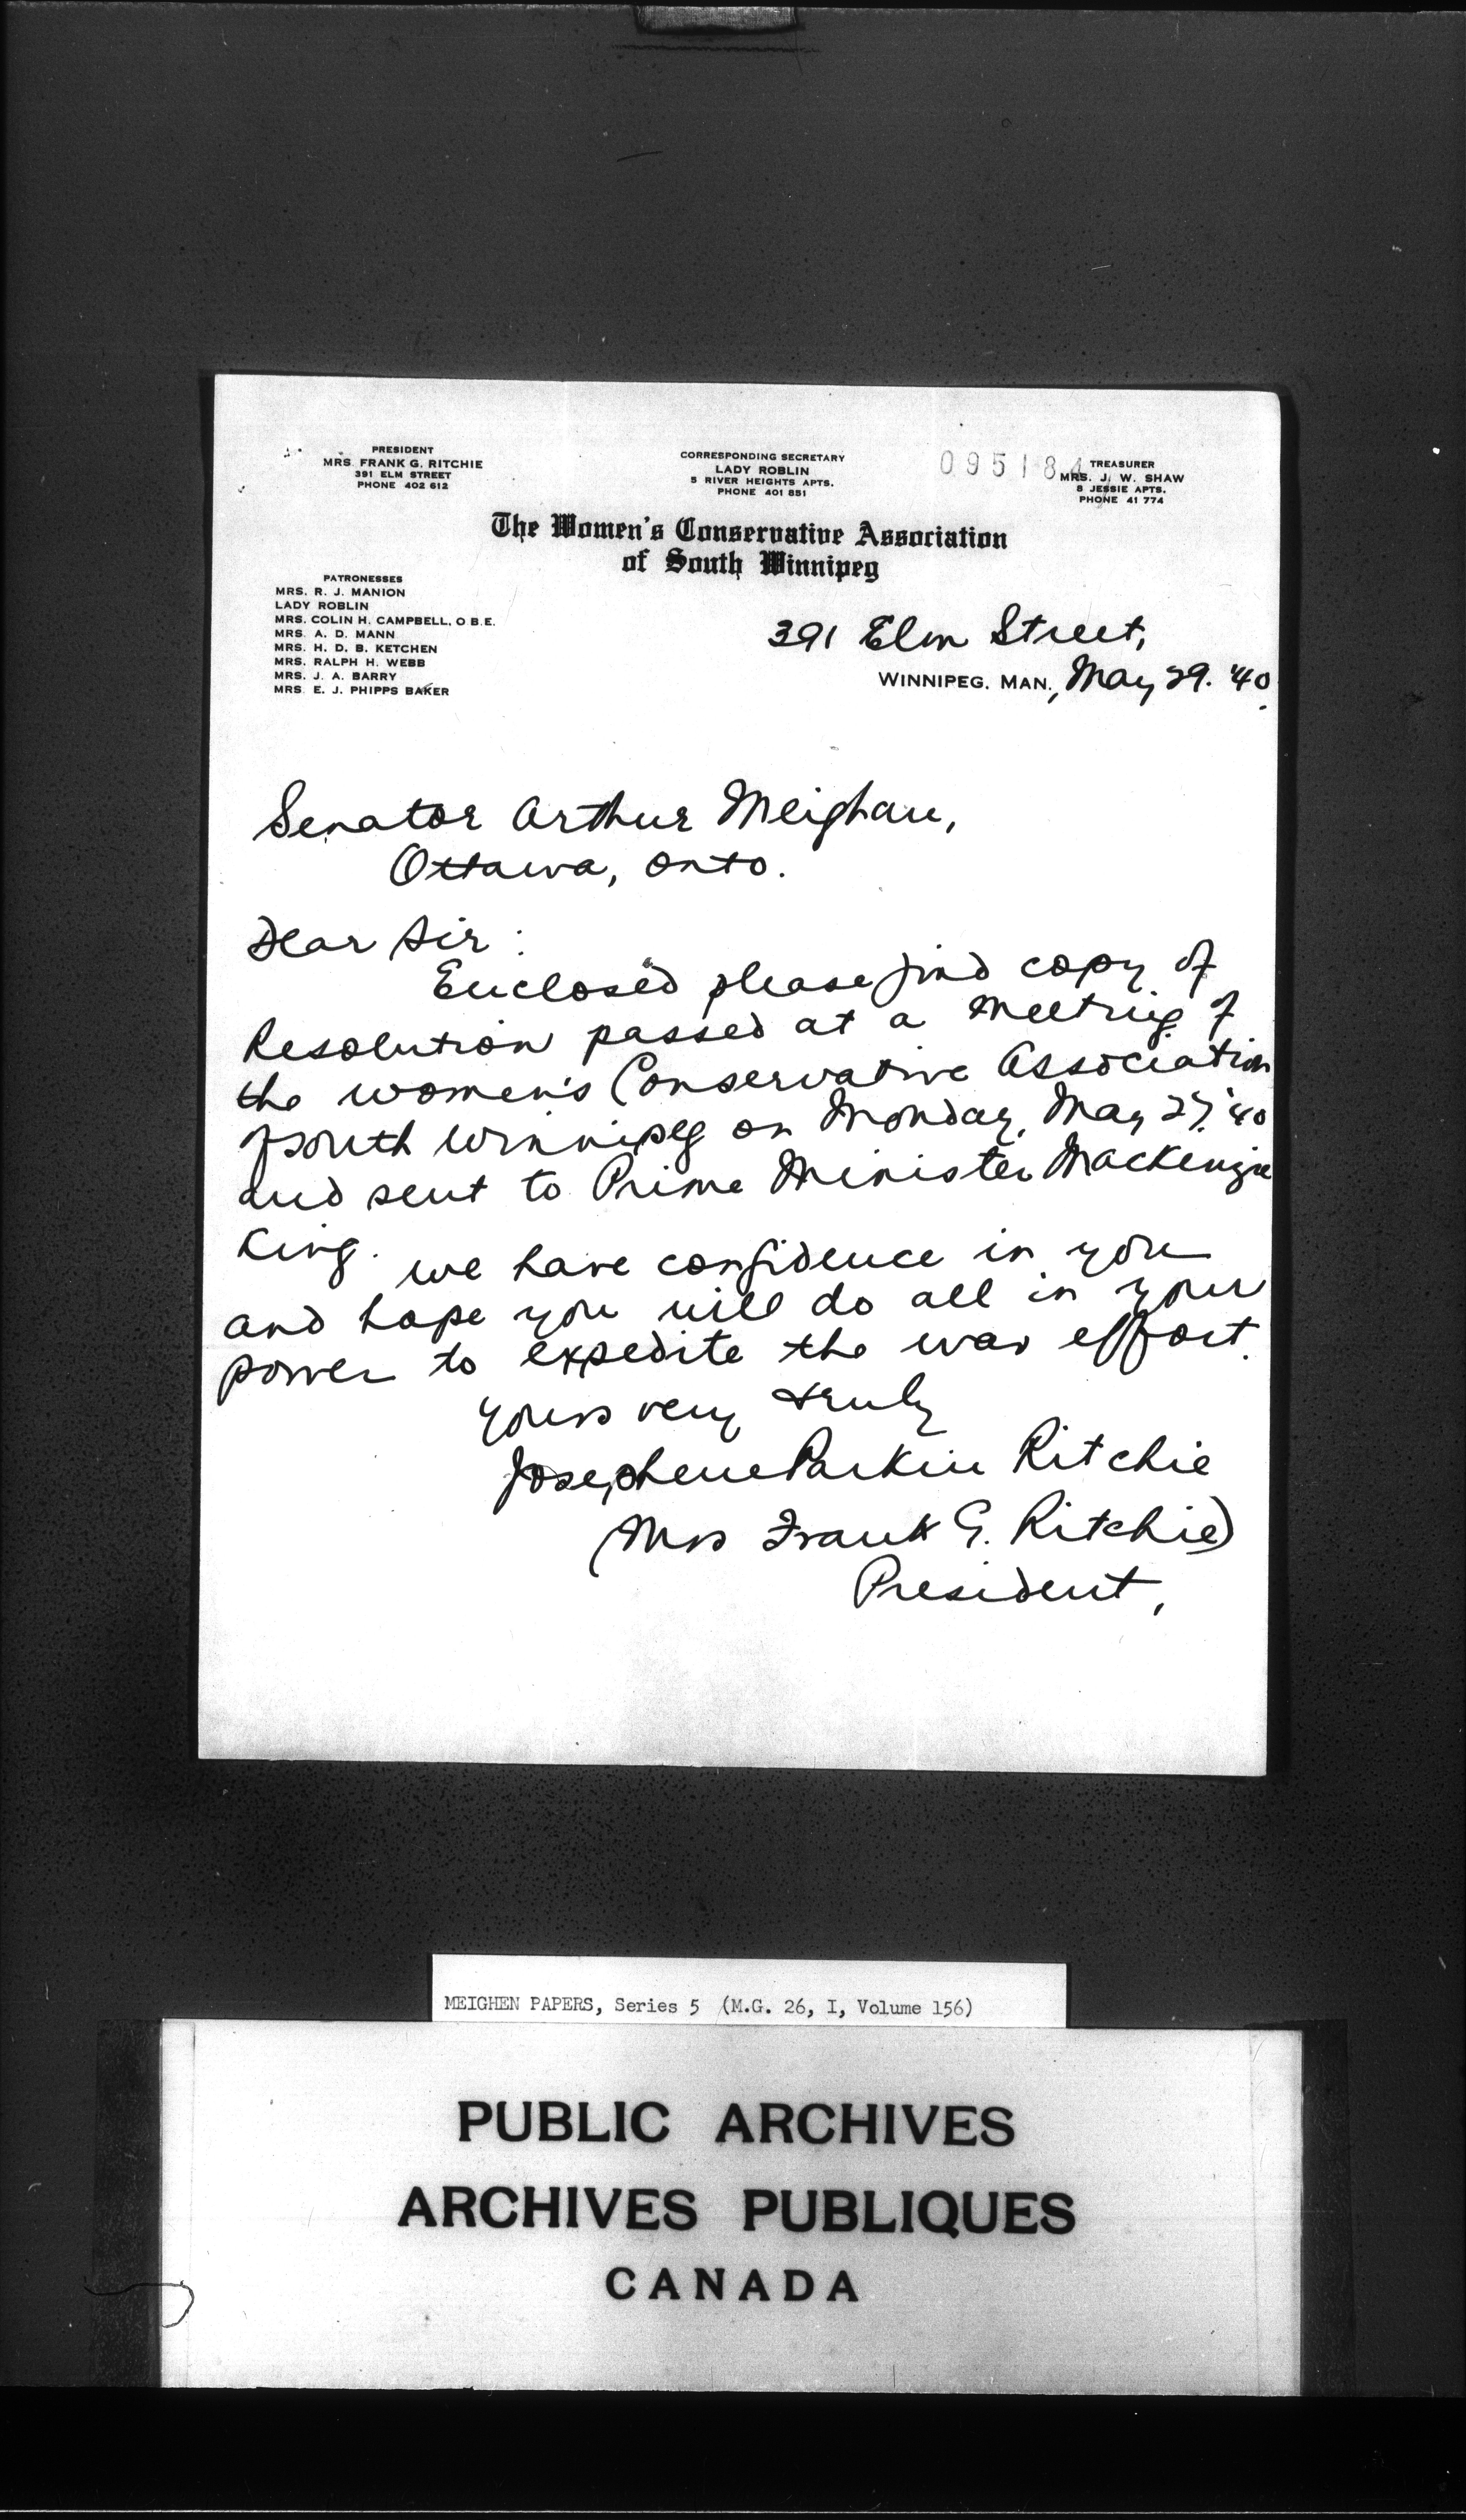 PRESIDENT
MRS. FRANK G. RITCHIE
391 ELM STREET
PHONE 402 612
CORRESPONDING SECRETARY
LADY ROBLIN
5 RIVER HEIGHTS APTS.
PHONE 401 851
095184
TREASURER
MRS. J. W. SHAW
8 JESSIE APTS.
PHONE 41 774
The Women's Conservative Association
of South Winnipeg
PATRONESSES
MRS. R. J. MANION
LADY ROBLIN
MRS. COLIN H. CAMPBELL, O.B.E.
MRS. A. D. MANN
MRS. H. D. B. KETCHEN
MRS. RALPH H. WEBB
MRS. J. A. BARRY
MRS. E. J. PHIPPS BAKER
391 Elm Street,
WINNIPEG, MAN., May 29. '40.
Senator Arthur Meighan,
Ottawa, Onto.
Dear Sir:
Enclosed please find copy of
Resolution passed at a meeting of
the women's Conservative Association
of South Winnipeg on Monday, May 27, '40
and sent to Prime Minister Mackenzie
King. We have confidence in you
and hope you will do all in your
power to expedite the war effort.
Yours very truly
Josephene Parkin Ritchie
(Mrs Frank G. Ritchie)
President,
MEIGHEN PAPERS, Series 5 (M.G. 26, I, Volume 156)
PUBLIC ARCHIVES
ARCHIVES PUBLIQUES
CANADA